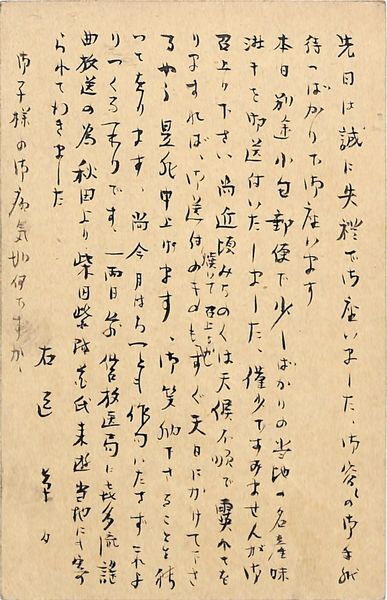 先日は誠に失禮で御座いました、御容しの御手紙
待つばかりで御座います
本日別途小包郵便で少しばかりの当地の名産味
淋干を御送付いたしました、僅少ですみませんが御
召上り下さい 尚近頃みちのくは天候不順で
りますれば、御送付のものもすぐ天日にかけて下さ
るやう是非申上げます、御笑納下さることを待
って居ります、尚今月はち一とも作句いたさずこれよ
りつくる不りです、一両日前 放送局に喜多流謡
曲放送の為秋田より 柴田 氏来遊当地にも寄
られてゆきました
御子様の御病気如何ですか、
右迄